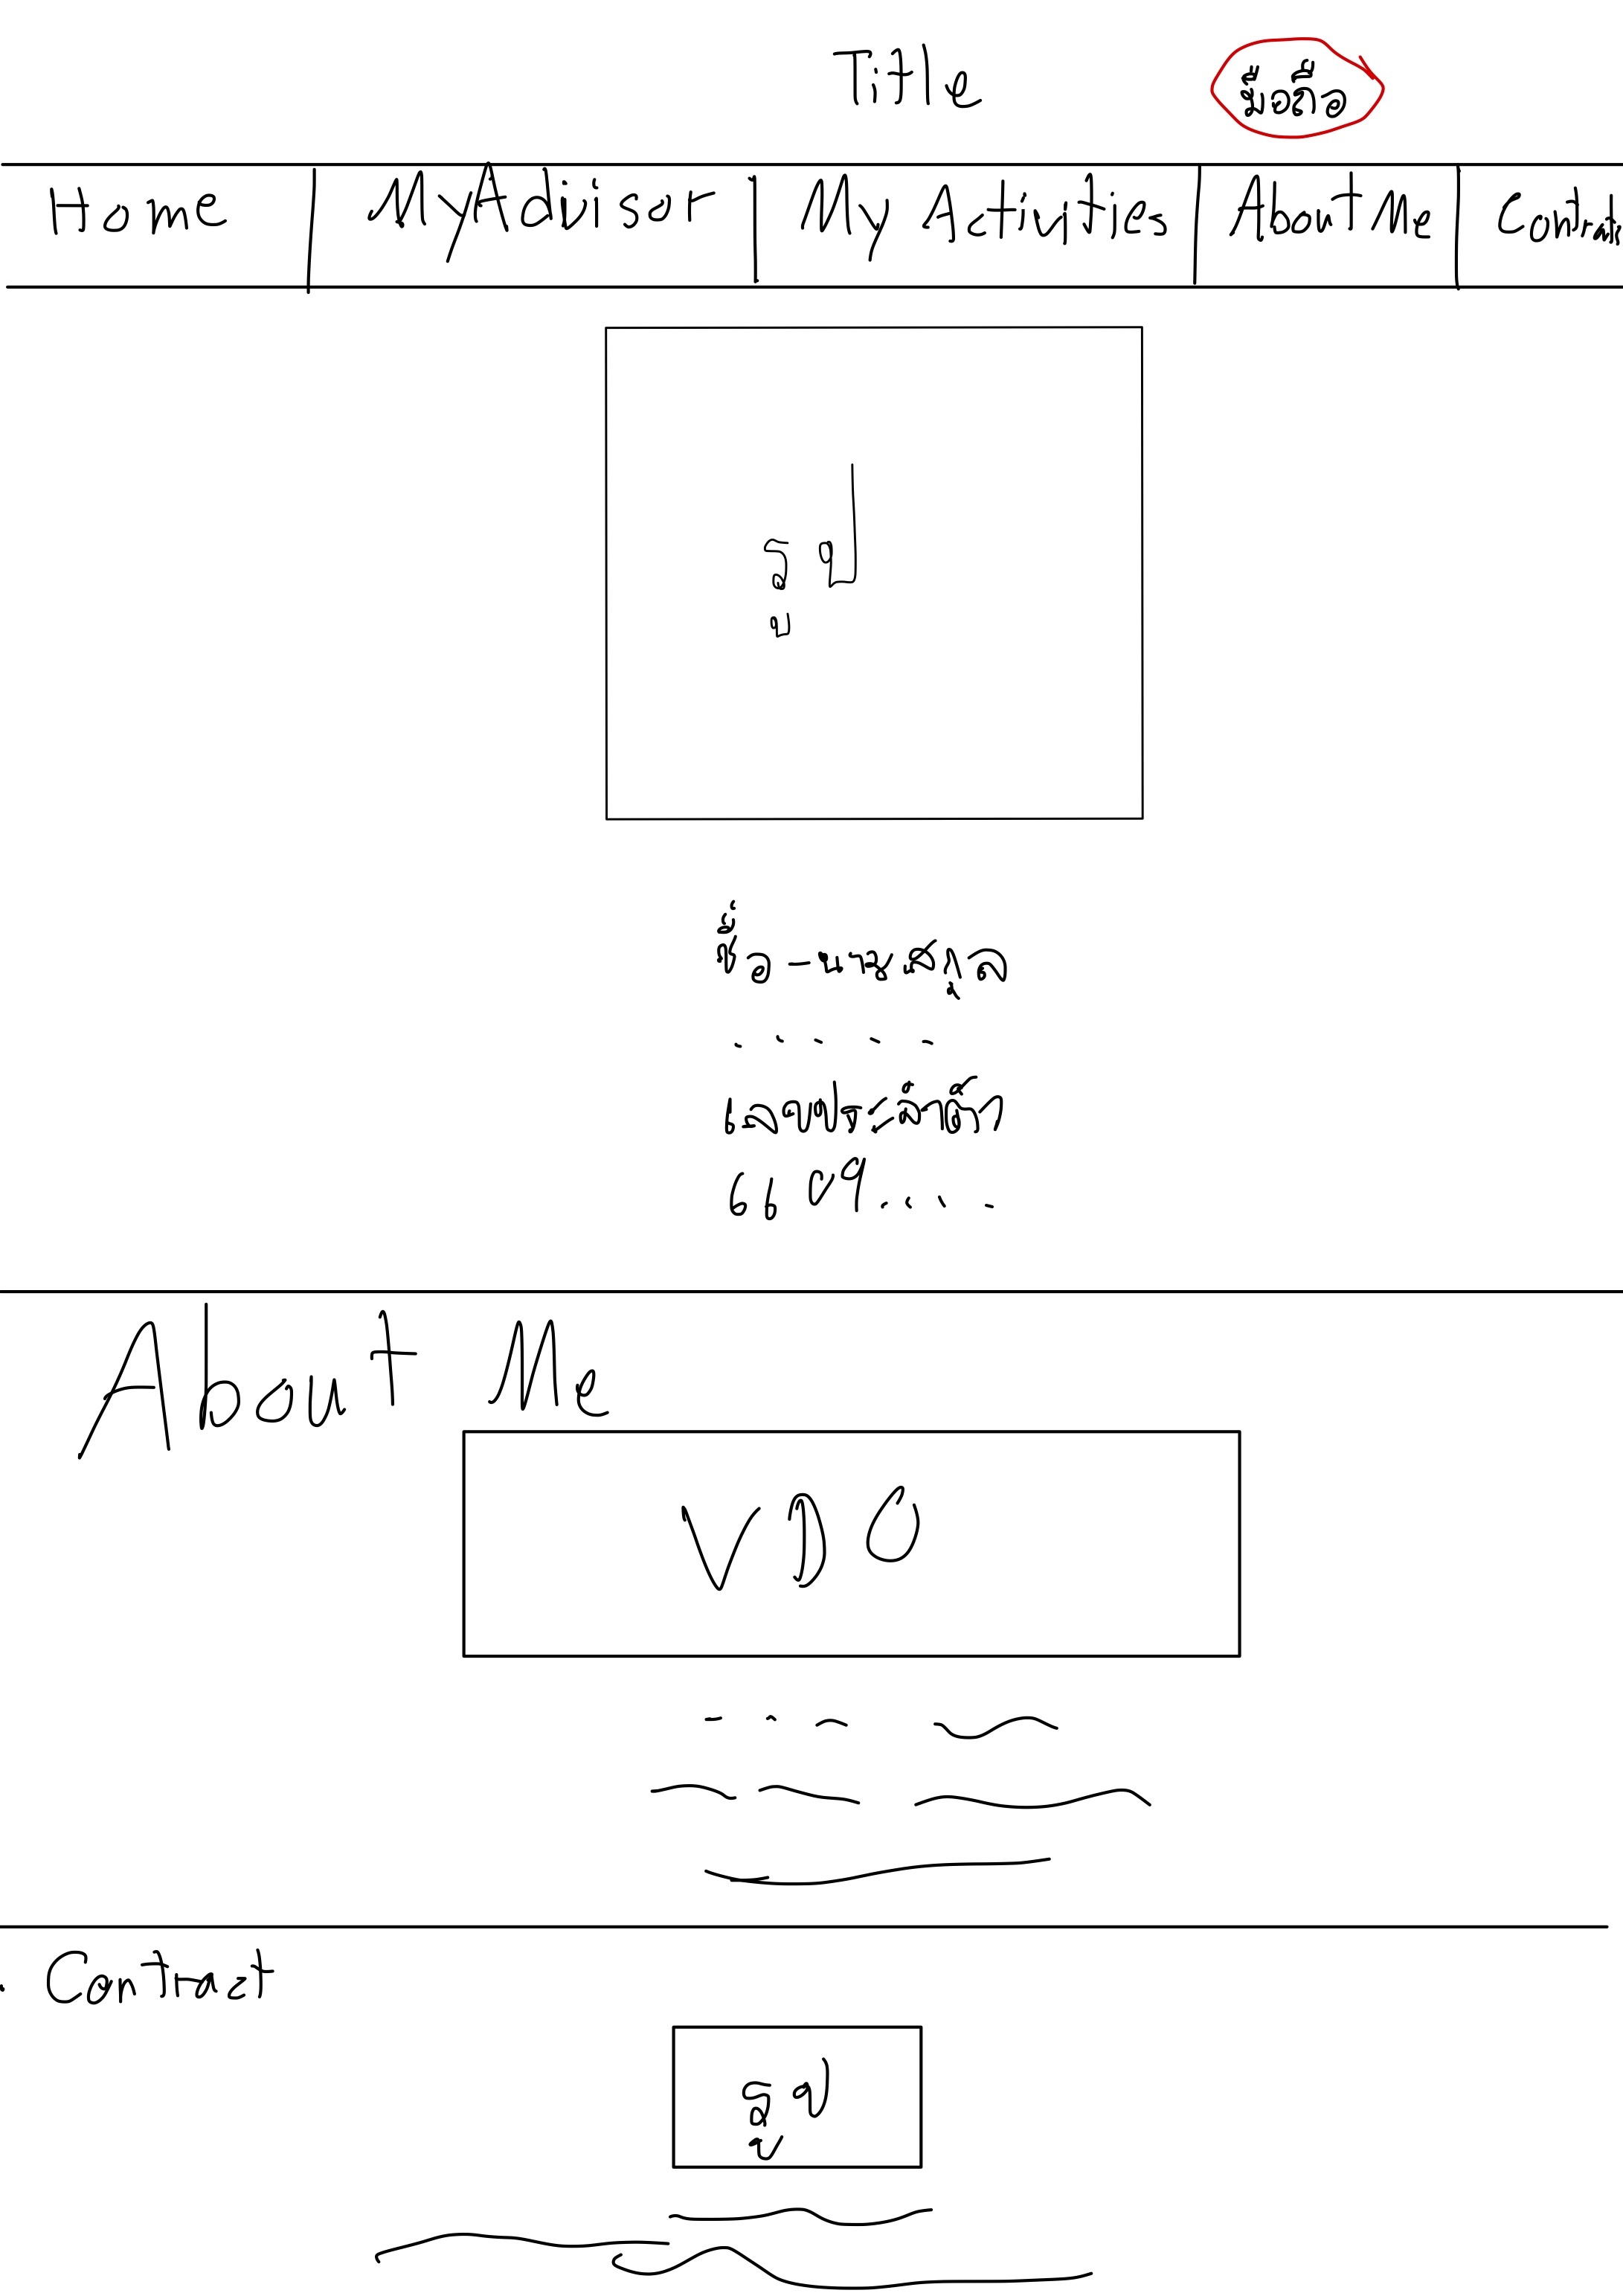 Title มือถือ
Home MyAdvisor My Activities About Me
รูป
ชื่อ-นามสกุล
.....
เลขประจำตัว
6609....
About Me
VDO
Contract
รูป